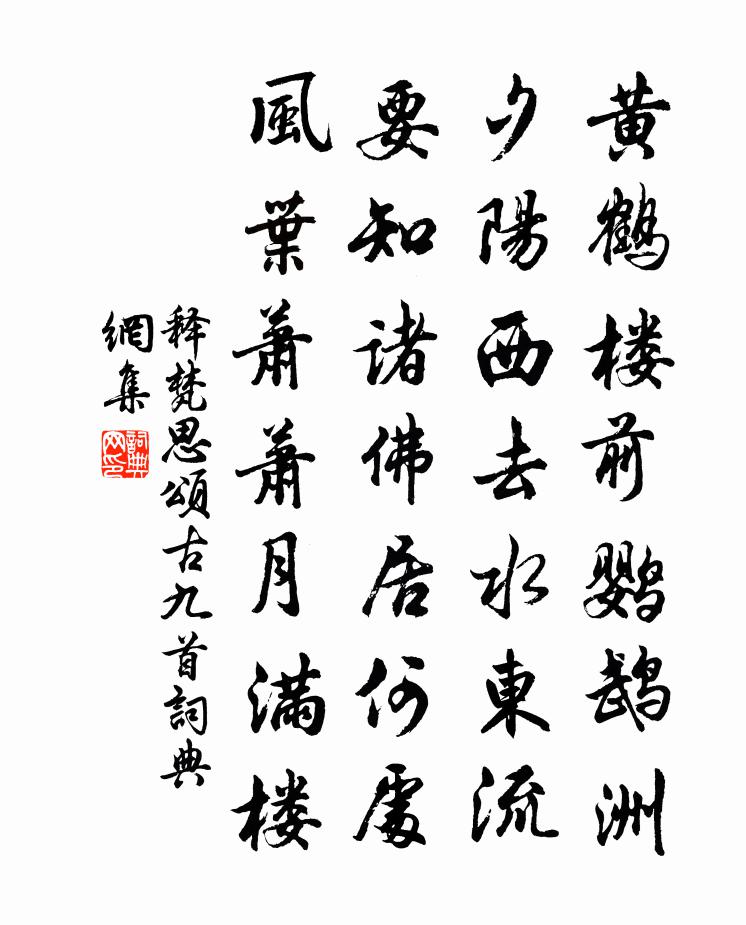 黄鹤楼前鹦鹉洲
夕陽西去水東流
要知诸佛居何處
風葉蕭蕭月满楼
释梵思頌古九首詞典
網集
詞典
网印